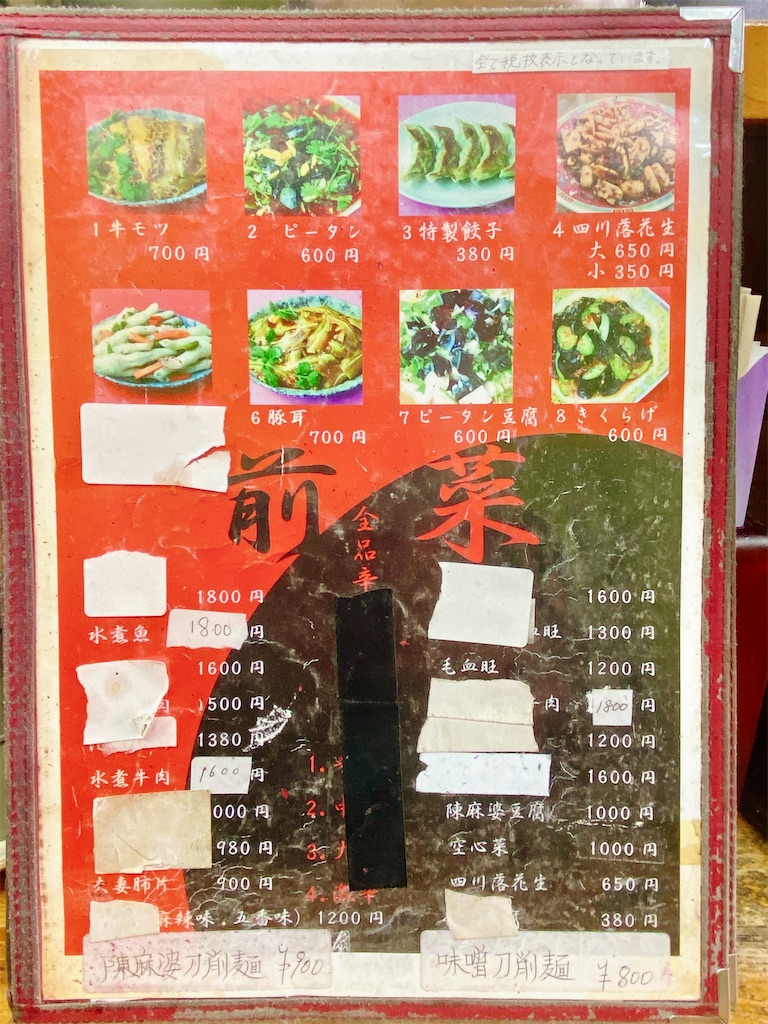 全て税抜表示となっています。
1牛モツ
700円
2 ピータン
600円
3特製餃子
380円
4四川落花生
大650円
小350円
6豚耳
700円
7ピータン豆腐
600円
8きくらげ
600円
前菜
全品辛
1800円
水煮魚 1800円
1600円
肉 1500円
1380円
水煮牛肉 1600円
000円
980円
夫妻肺片 900円
麻辣味.五香味) 1200円
1.
2.
3.
4.
1600円
血旺 1300円
毛血旺 1200円
牛肉 1800円
1200円
1600円
陳麻婆豆腐 1000円
空心菜 1000円
四川落花生 650円
380円
陳麻婆刀削麺 ¥900
味噌刀削麺 ¥800